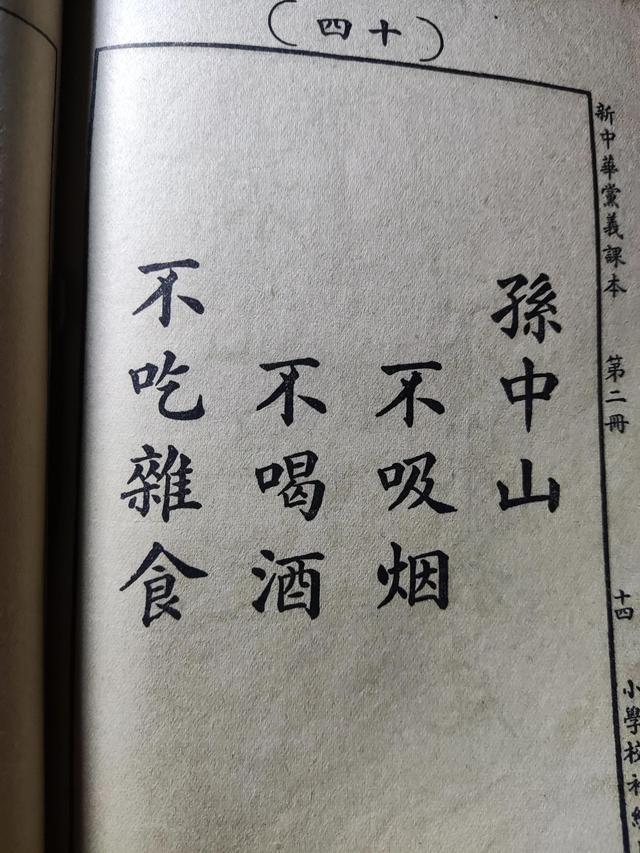 (十四)
新中華黨義課本 第二冊 十四 小學校初級
孫中山
不吸烟
不喝酒
不吃雜食